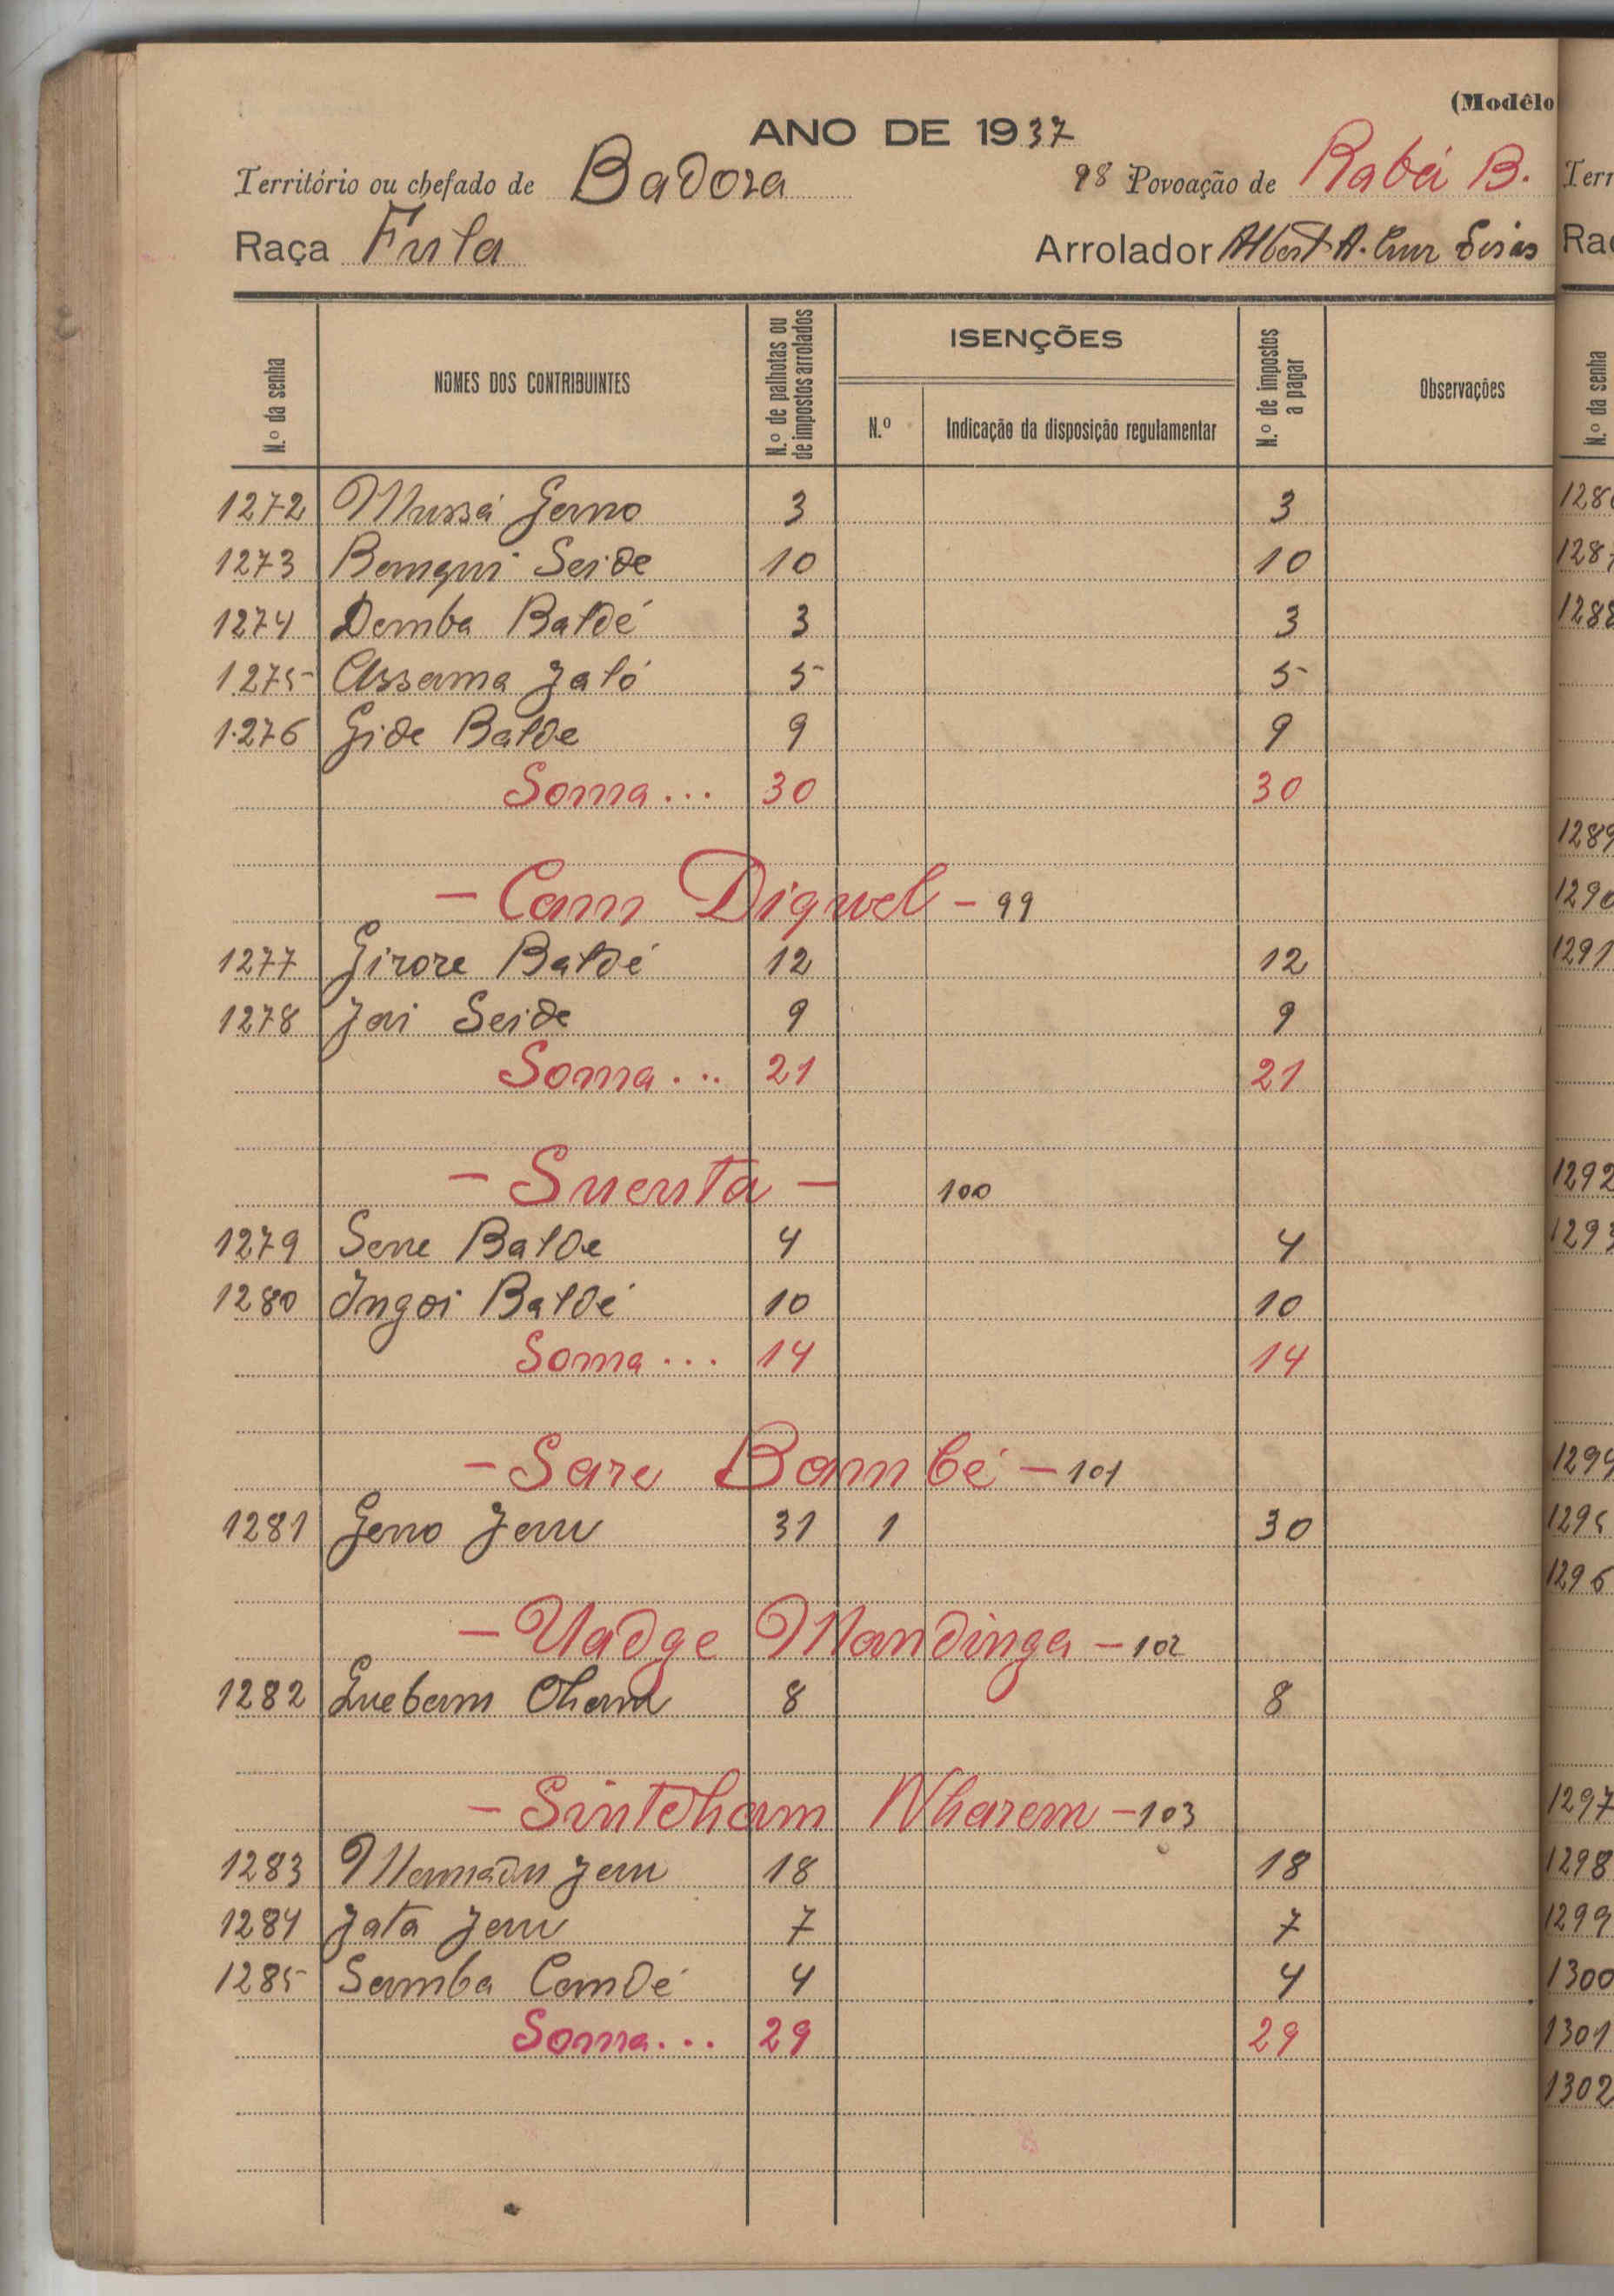 (Modêlo
ANO DE 1937
Território ou chefado de Badora 98 Povoação de Rabéi B.
Raça Fula Arrolador Albert A. Cruz
N.º da senha NOMES DOS CONTRIBUINTES N.º de palhotas ou de impostos arrolados ISENÇÕES N.º Indicação da disposição regulamentar N.º de impostos a pagar Observações
1272 Mussá Jemo 3 3
1273 Bomqui Seide 10 10
1274 Demba Baldé 3 3
1275 Assama Jaló 5 5
1276 Gide Balde 9 9
Soma... 30 30
- Cam Diquel - 99
1277 Girore Baldé 12 12
1278 Jai Seide 9 9
Soma... 21 21
- Suenta - 100
1279 Sene Balde 4 4
1280 Ingoi Baldé 10 10
Soma... 14 14
- Sare Bambé - 101
1281 Geno Jau 31 1 30
- Uadge Mandinga - 102
1282 8 8
- Sintcham Nharem - 103
1283 Mamadu Jau 18 18
1284 Jata Jau 7 7
1285 Samba Candé 4 4
Soma... 29 29
Terr
Ra
N.º da senha
128
128
1288
1289
1290
1291
1292
1293
1294
1295
1296
1297
1298
1299
1300
1301
1302